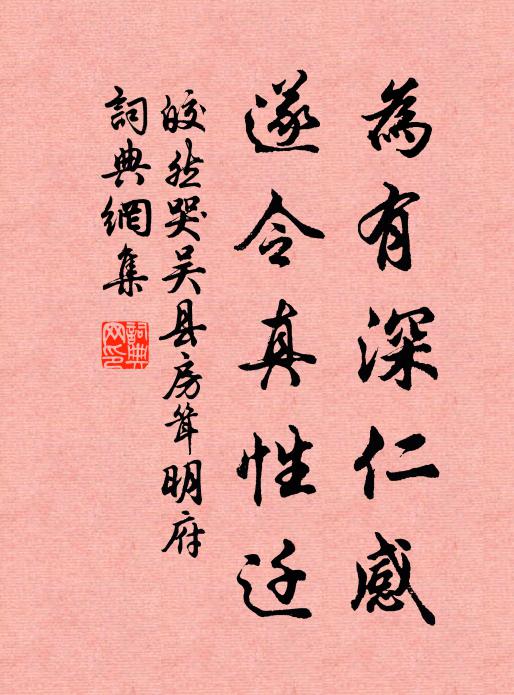 為有深仁感
遂令真性迁
皎然哭吴县房耸明府
詞典網集
詞典网印